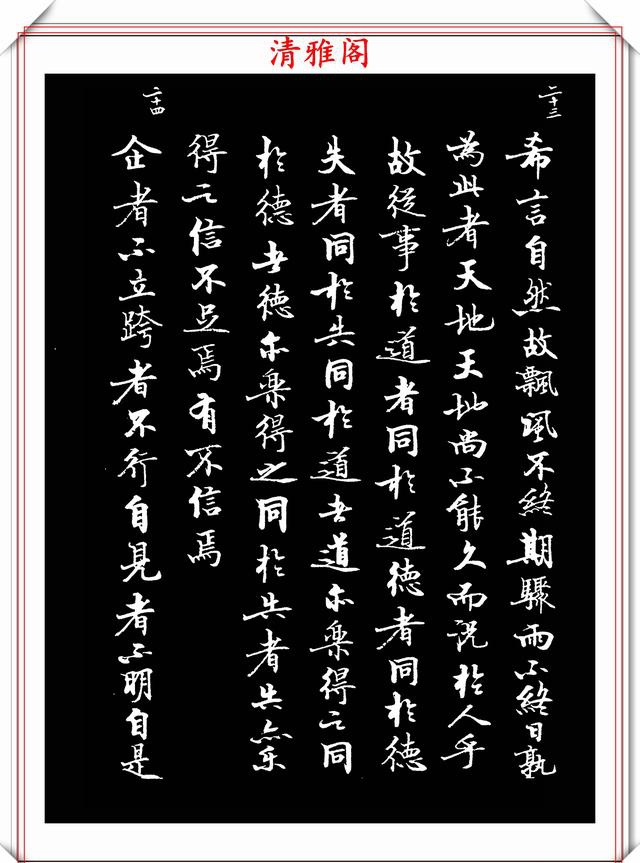 清雅阁
二十三
希言自然故飄風不終期驟雨不終日孰
為此者天地天地尚不能久而況於人乎
故從事於道者同於道德者同於德
失者同於失同於道者道亦樂得之同
於德者德亦樂得之同於失者失亦樂
得之信不足焉有不信焉
二十四
企者不立跨者不行自見者不明自是